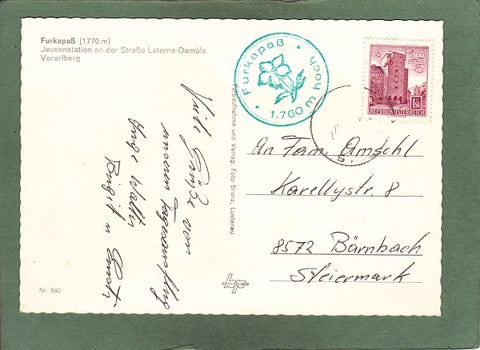 Furkapaß (1770 m)
Jausenstation an der Straße Laterns-Damüls
Vorarlberg
Furkapaß
1.760 m hoch
REPUBLIK ÖSTERREICH
Viele Grüße von
unserem Tagesausflug
Inge Walter
Birgit u.
Verlag Foto Branz, Lustenau
An Fam. Amschl
Karellystr. 8
8572 Bärnbach
Steiermark
Nr. 642